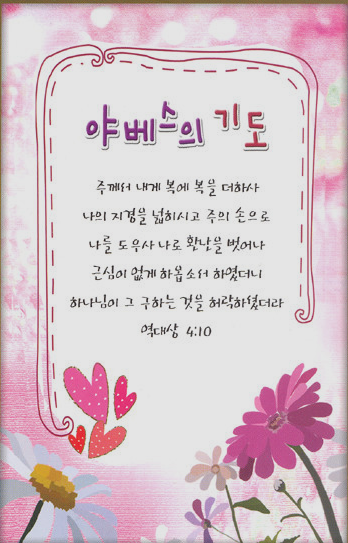 야베스의 기도
주께서 내게 복에 복을 더하사
나의 지경을 넓히시고 주의 손으로
나를 도우사 나로 환난을 벗어나
근심이 없게 하옵소서 하였더니
하나님이 그 구하는 것을 허락하셨더라
역대상 4:10